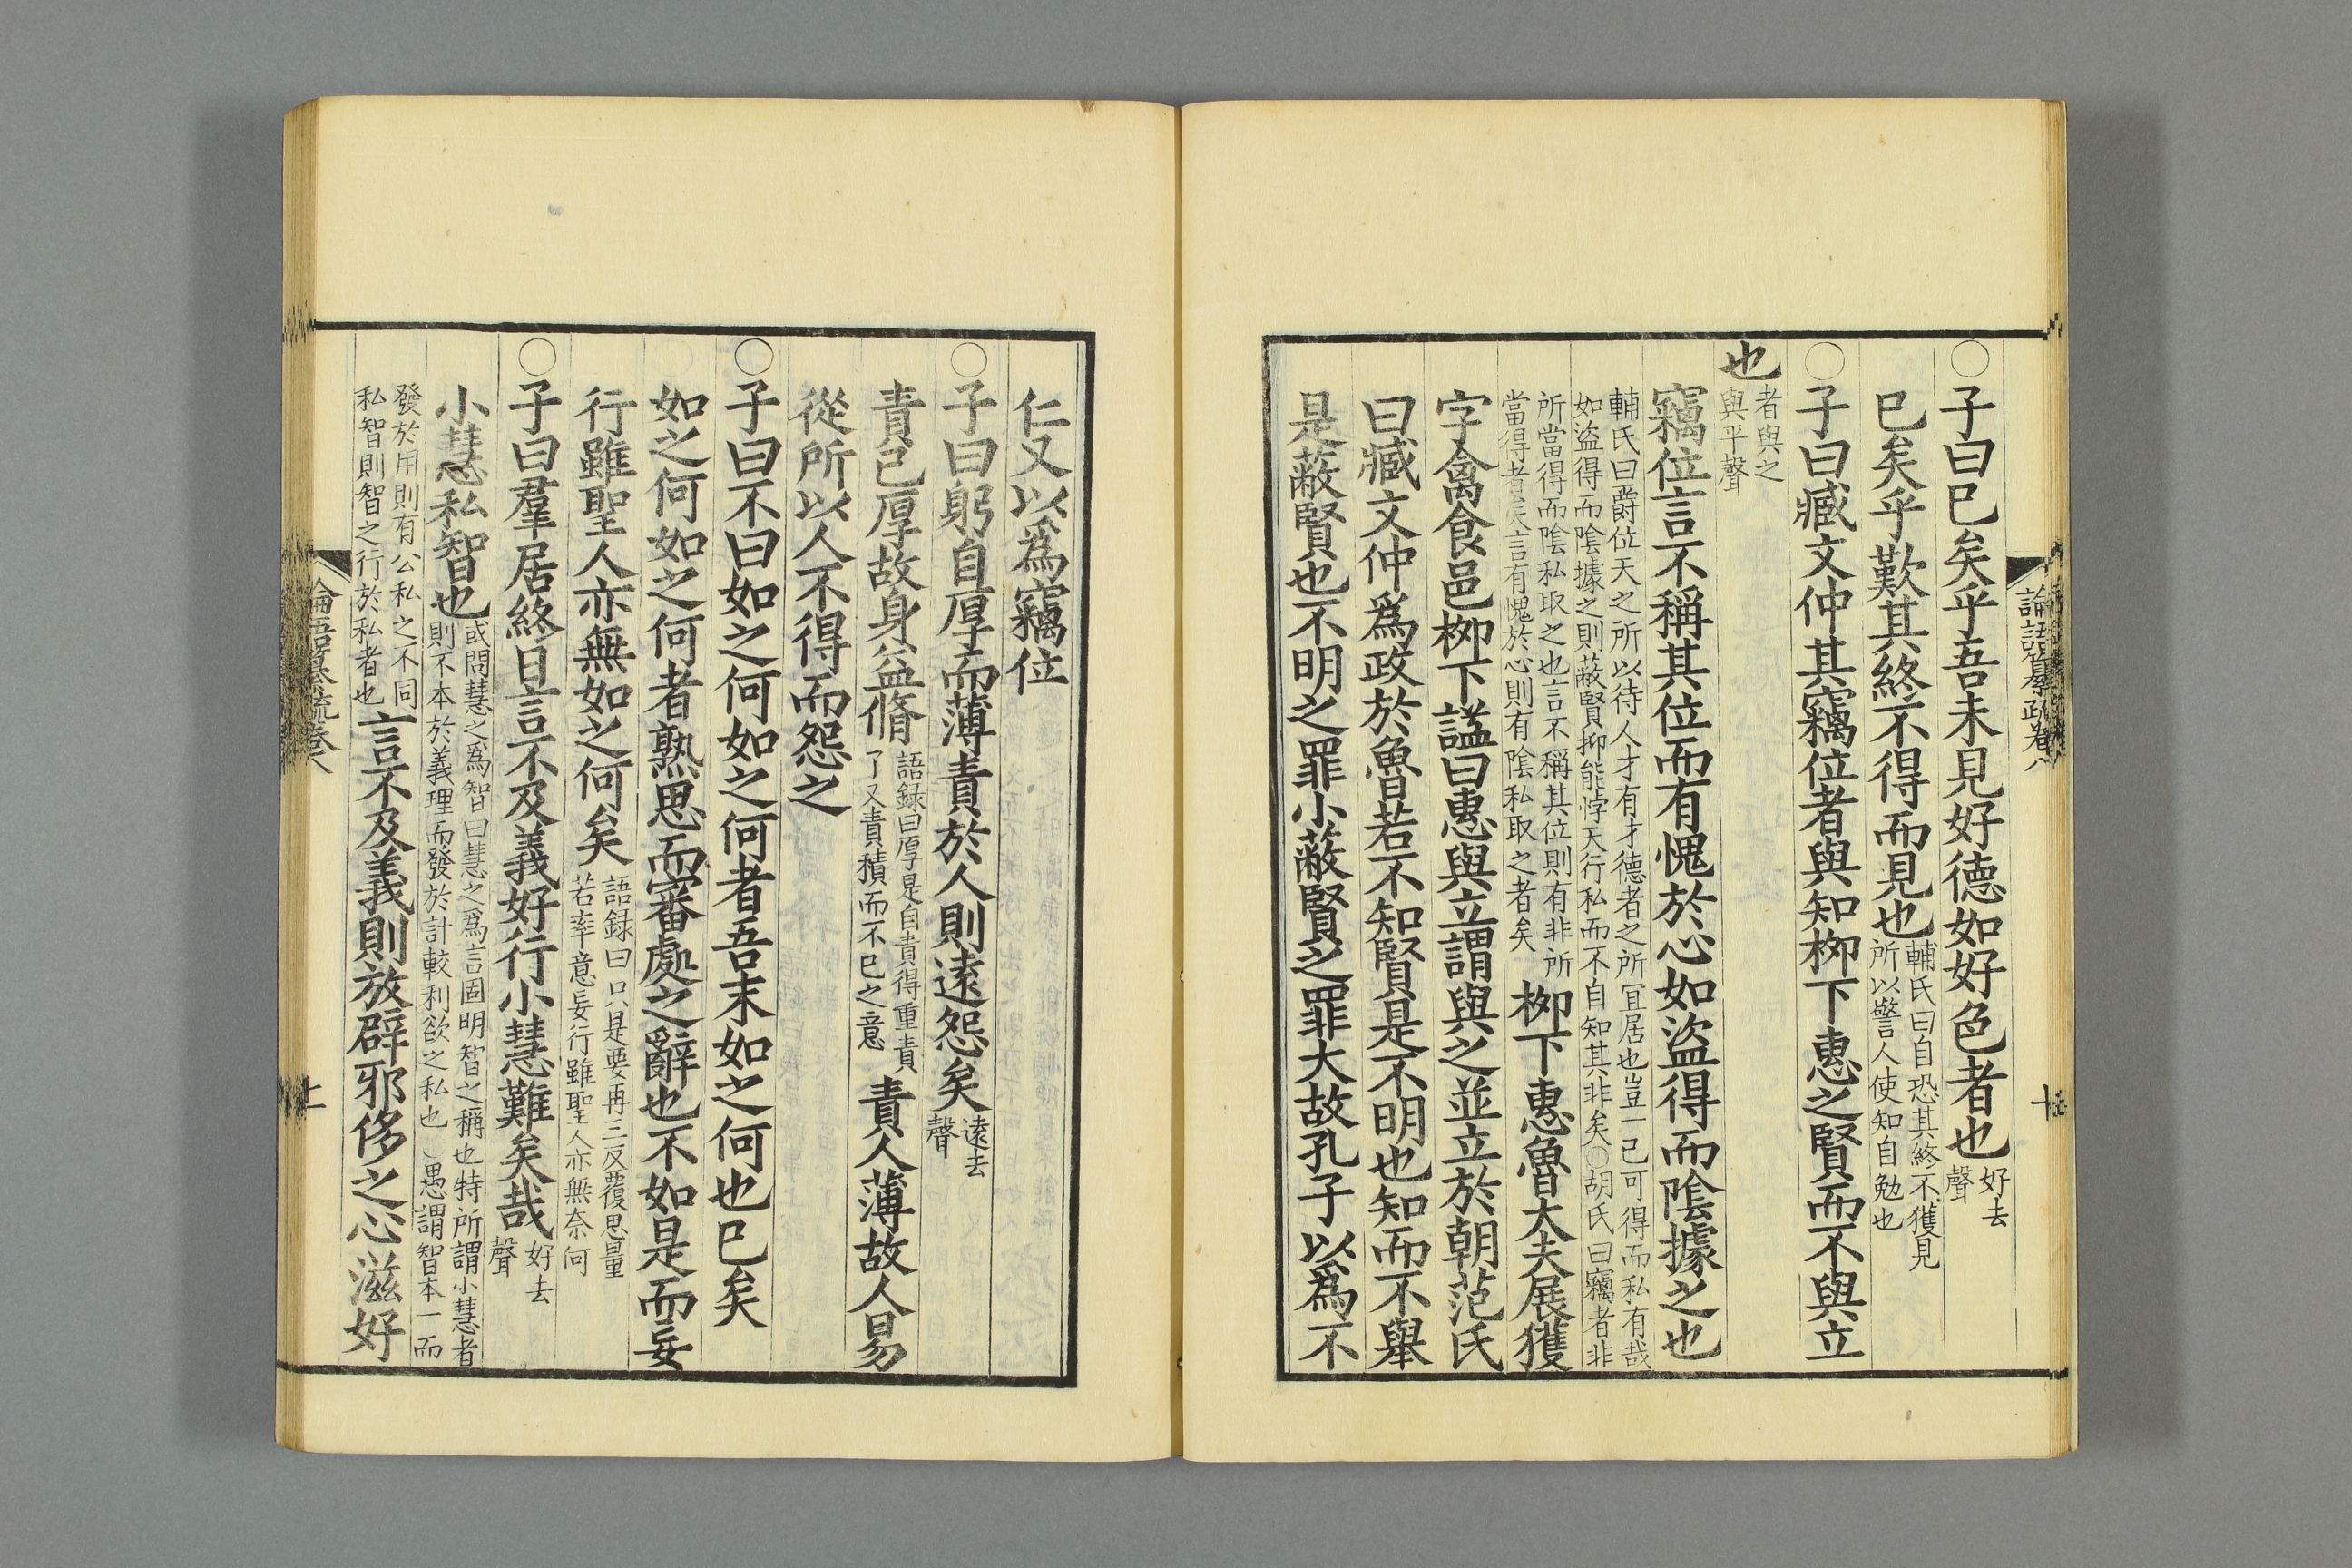 論語纂疏卷八
十
○子曰已矣乎吾未見好德如好色者也好去
聲
已矣乎歎其終不得而見也輔氏曰自恐其終不獲見
所以警言人使知自勉也
○子曰臧文仲其竊位者與知栁下惠之賢而不與立
也者與之
與平聲
竊位言不稱其位而有愧於心如盜得而陰據之也
輔氏曰爵位天之所以待人才有才德者之所冝居也豈一己可得而私有哉
如盜得而陰據之則蔽賢抑能悖天行私而不自知其非矣○胡氏曰竊者非
所當得而陰私取之也言不稱其位則有非所
當得者矣言有愧於心則有陰私取之者矣
栁下惠魯大夫展獲
字禽食邑栁下謚曰惠與立謂與之並立於朝范氏
曰臧文仲爲政於魯若不知賢是不明也知而不舉
是蔽賢也不明之罪小蔽賢之罪大故孔子以爲不
仁又以爲竊位
○子曰躬自厚而薄責於人則遠怨矣遠去
聲
責己厚故身益脩語録曰厚是自責得重責
了又責積而不已之意
責人薄故人易
從所以人不得而怨之
○子曰不曰如之何如之何者吾末如之何也已矣
如之何如之何者熟思而審處之辭也不如是而妄
行雖聖人亦無如之何矣語録曰只是要再三反覆思量
若率意妄行雖聖人亦無奈何
○子曰羣居終日言不及義好行小慧難矣哉好去
聲
小慧私智也或問慧之爲智曰慧之爲言固明智之稱也特所謂小慧者
則不本於義理而發於計較利欲之私也○愚謂智本一而
發於用則有公私之不同
私智則智之行於私者也
言不及義則放辟邪侈之心滋好
論語纂疏卷八